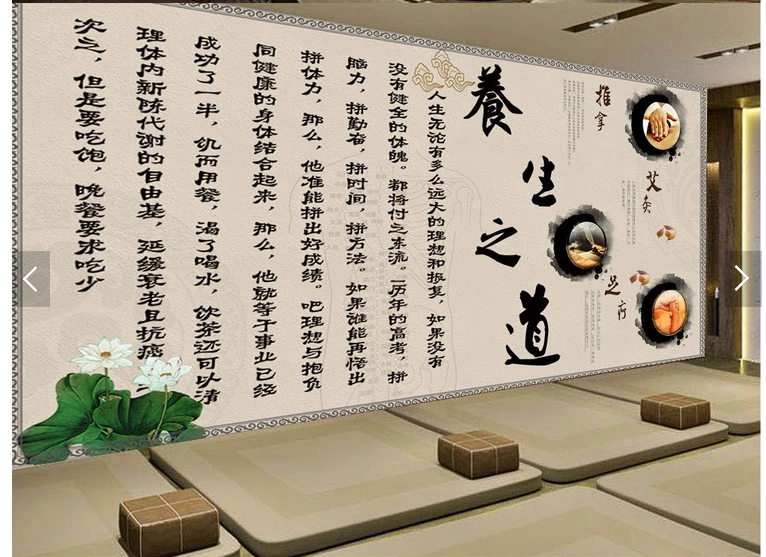 養生之道
推拿
艾灸
足疗
人生无论有多么远大的理想和恢复，如果没有
没有健全的体魄。都将付之东流。历年的高考，拼
脑力，拼勤奋，拼时间，拼方法。如果谁能再悟出
拼体力，那么，他准能拼出好成绩。吧理想与抱负
同健康的身体结合起来，那么，他就等于事业已经
成功了一半，饥而用餐，渴了喝水，饮茶还可以清
理体内新陈代谢的自由基，延缓衰老且抗癌
次之，但是要吃饱，晚餐要求吃少